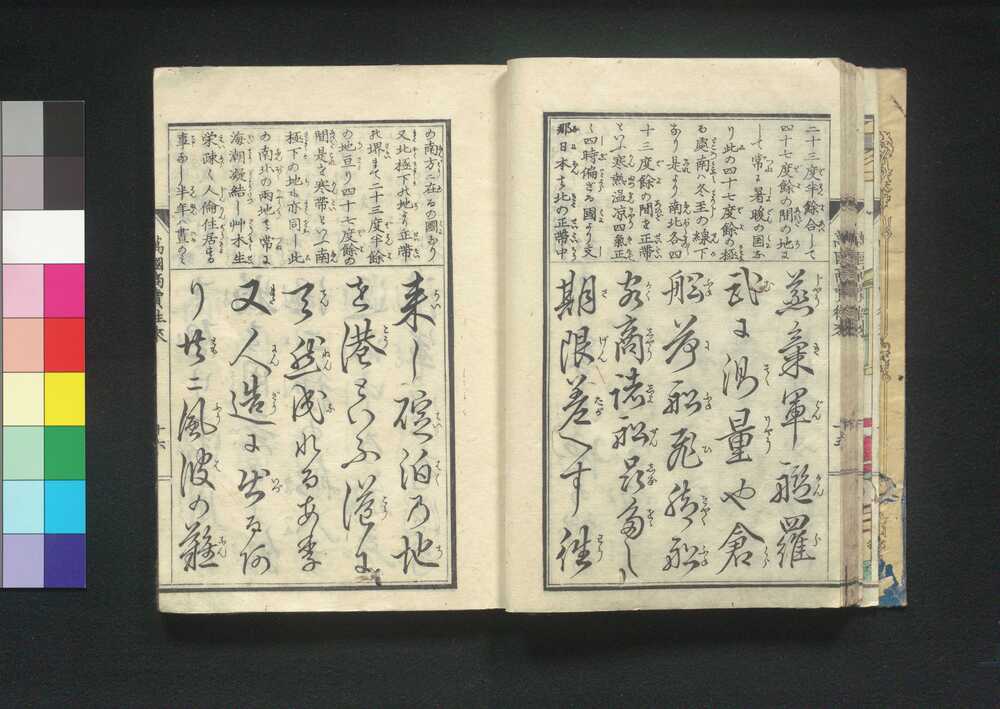 二十三度半餘合して
四十七度餘の間の地ハ
して常に暑暖の国
り此の四十七度餘の極
る處南ハ冬至の線下
なり是より南北各四
十三度餘の間を正帯
といふ寒熱温涼四氣正
く四時偏ぎる國より支
那日本ハ北の正帯中
蒸氣軍艦羅
針に測量や倉
船荷船飛脚船
客商諸船最多し
期限差へす往
の南方に在るの國なり
又北極下の地より正帯
の堺まて二十三度半餘
の地亘り四十七度餘の
間是を寒帯といふ南
極下の地も亦同し此
の南北の両地ハ常に
海潮凝結し艸木生
栄疎く人倫住居する
事なし半年ハ晝の
来し碇泊の地
を港といふ港に
天然成れるあり
又人造に出る
り共ニ風波の難
萬國商賣往来
十六